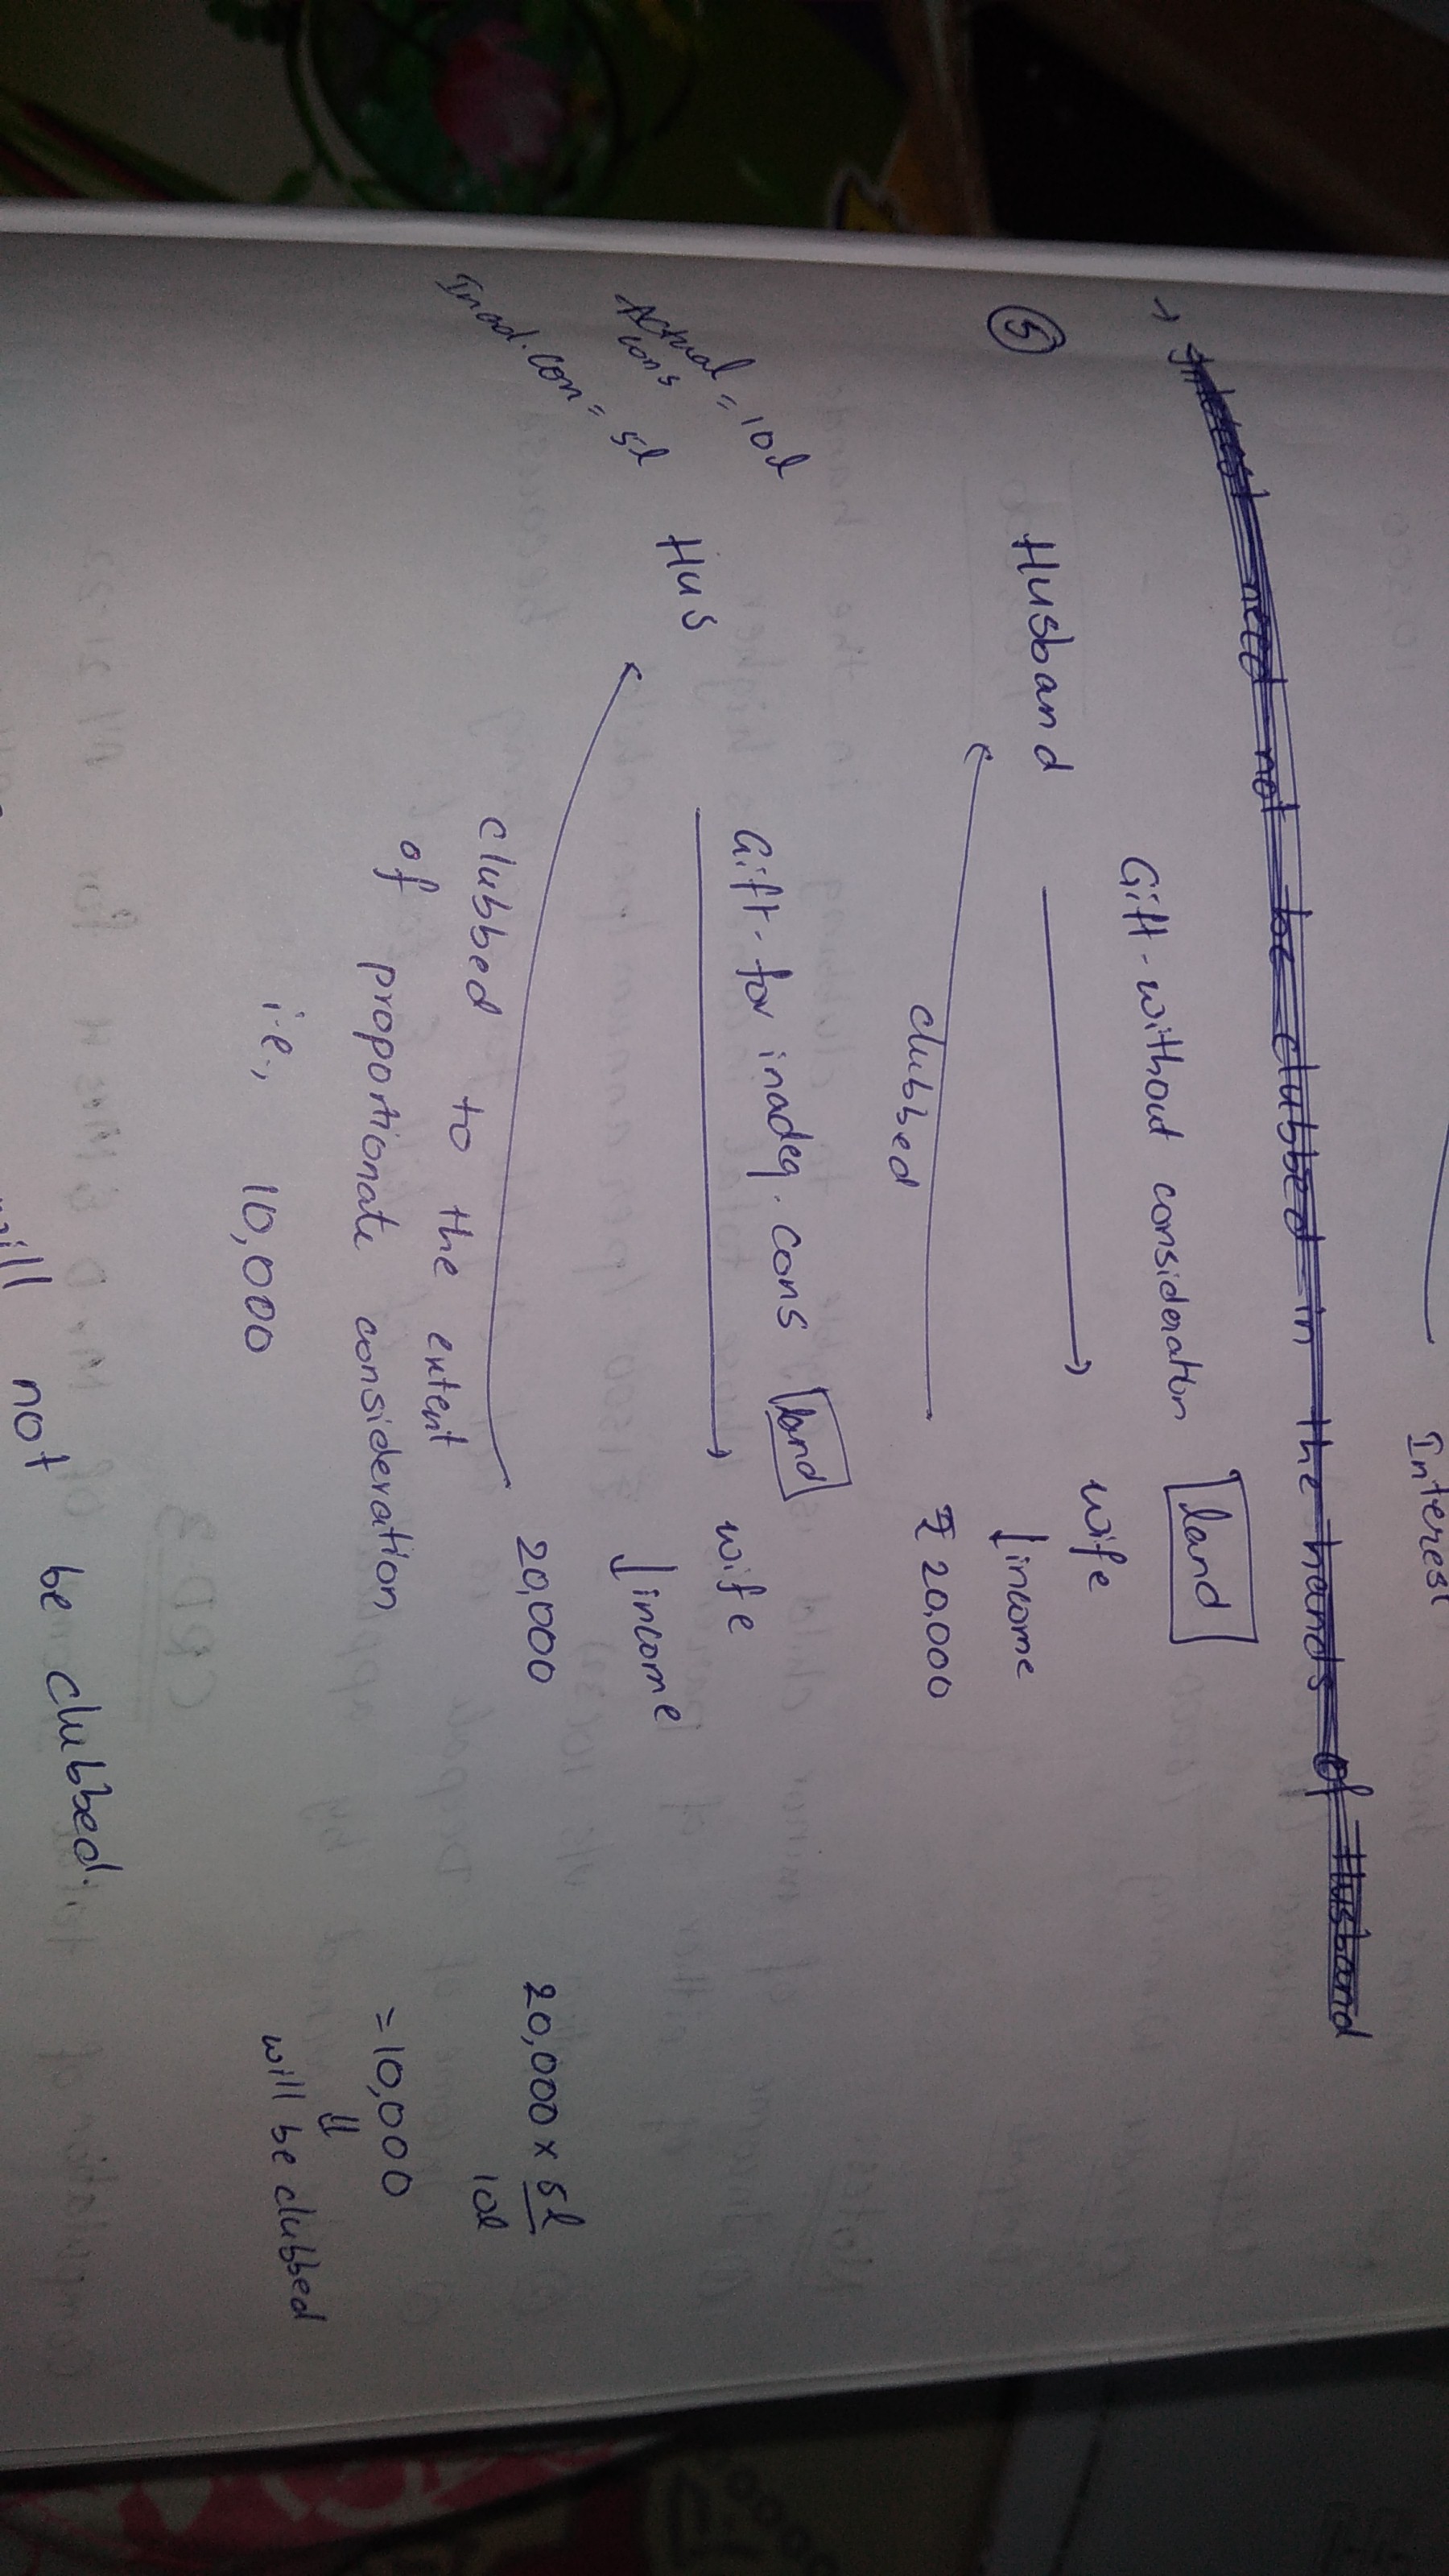 Interest
→ Interest need not be clubbed in the hands of Husband
Gift - without consideration land
⑤ Husband wife
↓ income
clubbed ₹ 20,000
Gift - for inadeq. cons land
Actual cons = 10l
Hus wife
Inad. con = 5l
↓ income
20,000
20,000 × 5l/10l
clubbed to the extent
of proportionate consideration
= 10,000
⇓
i.e., 10,000
will be clubbed
will not be clubbed.